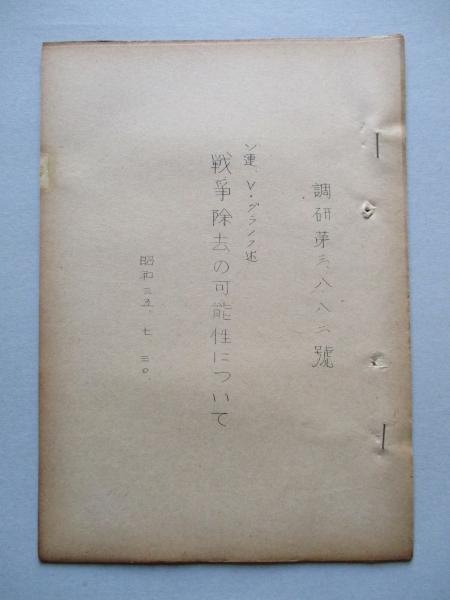 調研第三、八、八二號
ソ連、V・グラノフ述
戦爭除去の可能性について
昭和三五、七、三〇